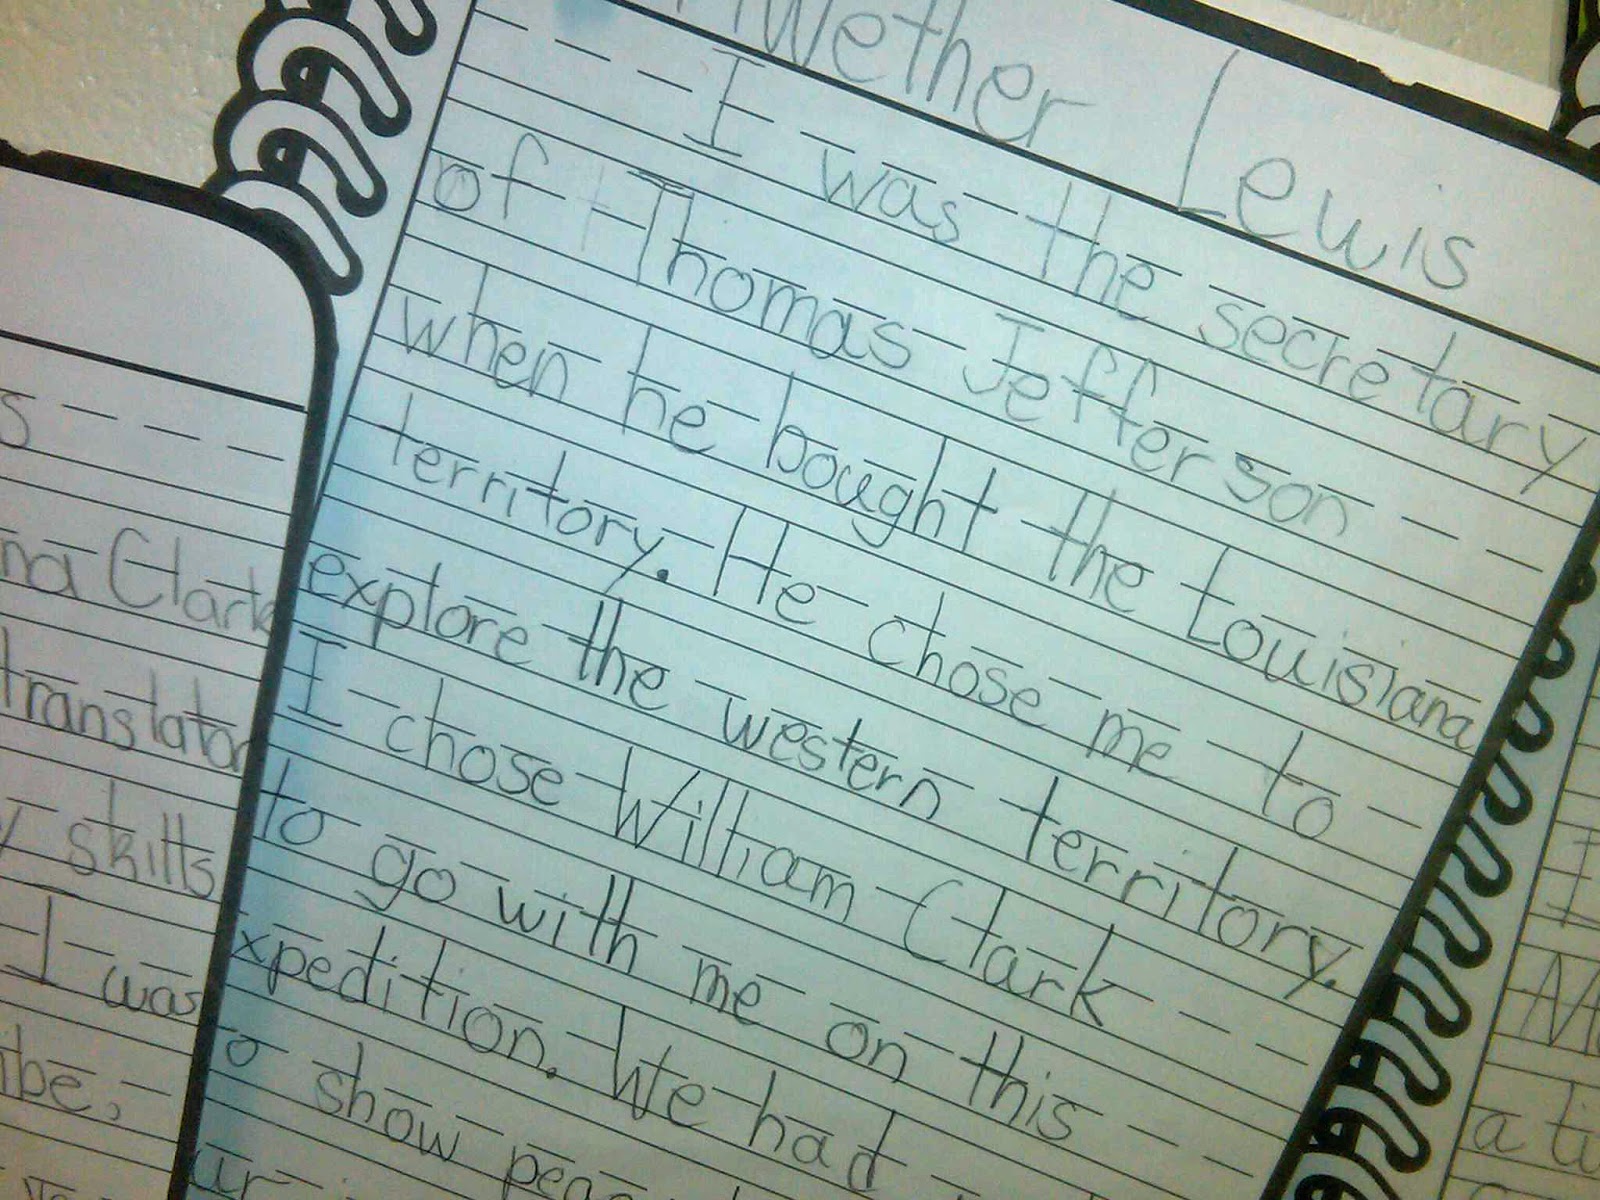 Lewis
I was the secretary
of Thomas Jefferson
when he bought the Louisiana
territory. He chose me to
explore the western territory.
I chose William Clark
to go with me on this
xpedition. We had
o show
ur
s
na Clark
translator
y skills
I was
ibe,
I
a